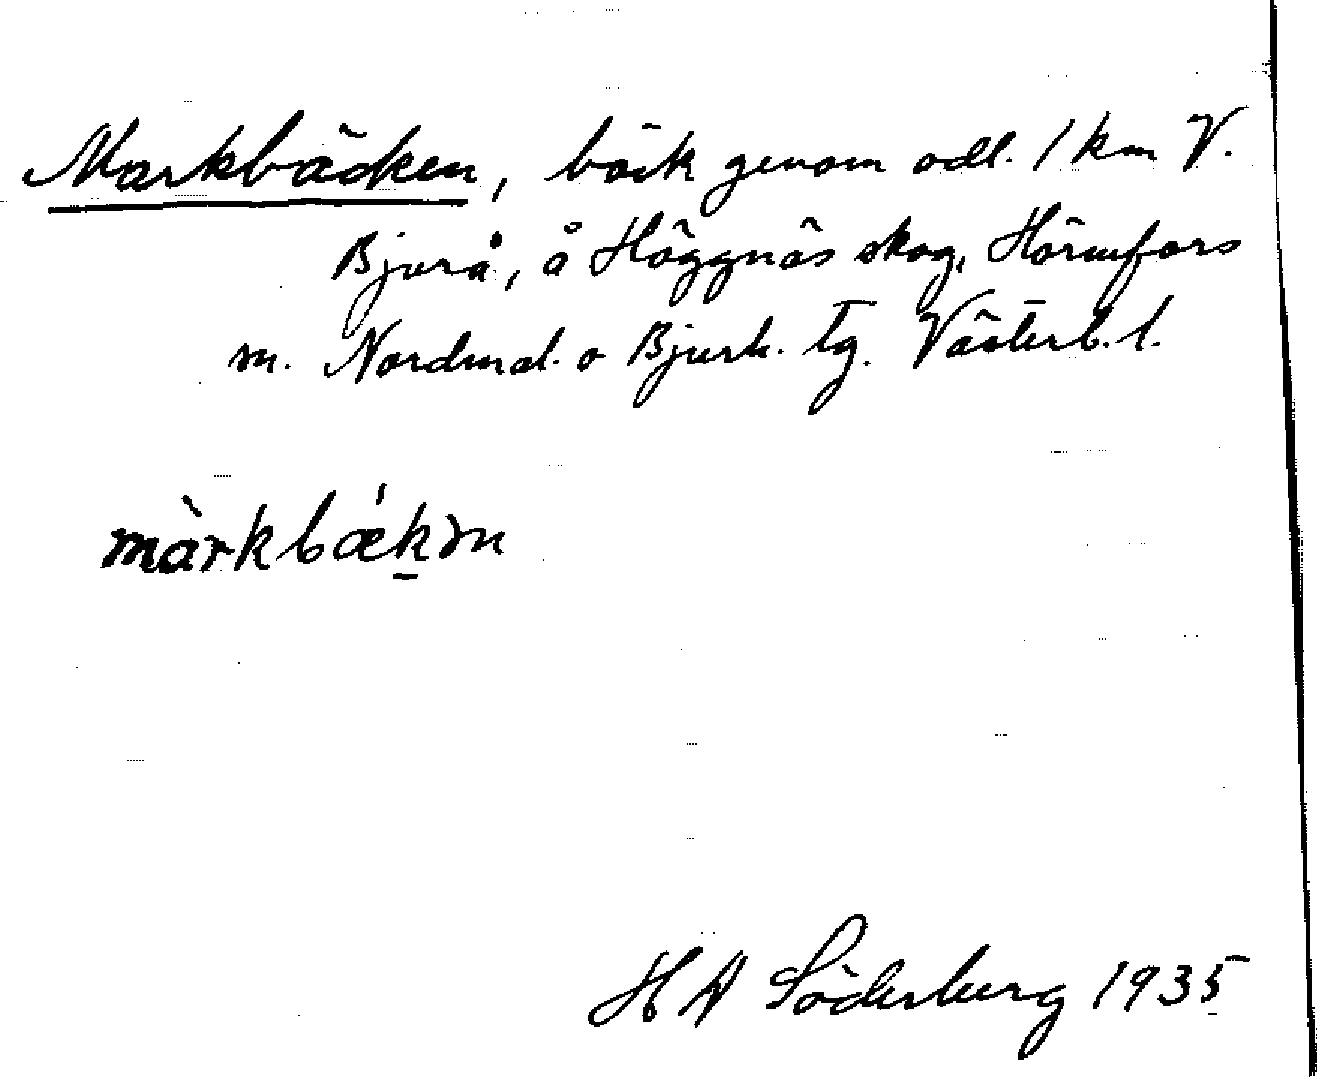 Markbäcken, bäck genom odl. 1 km V.
Bjurå, å Häggnäs skog, Hörnefors
m. Nordmal. o Bjurh. tg. Västerb. l.
màrkbǽk̠ən
H W Söderberg 1935